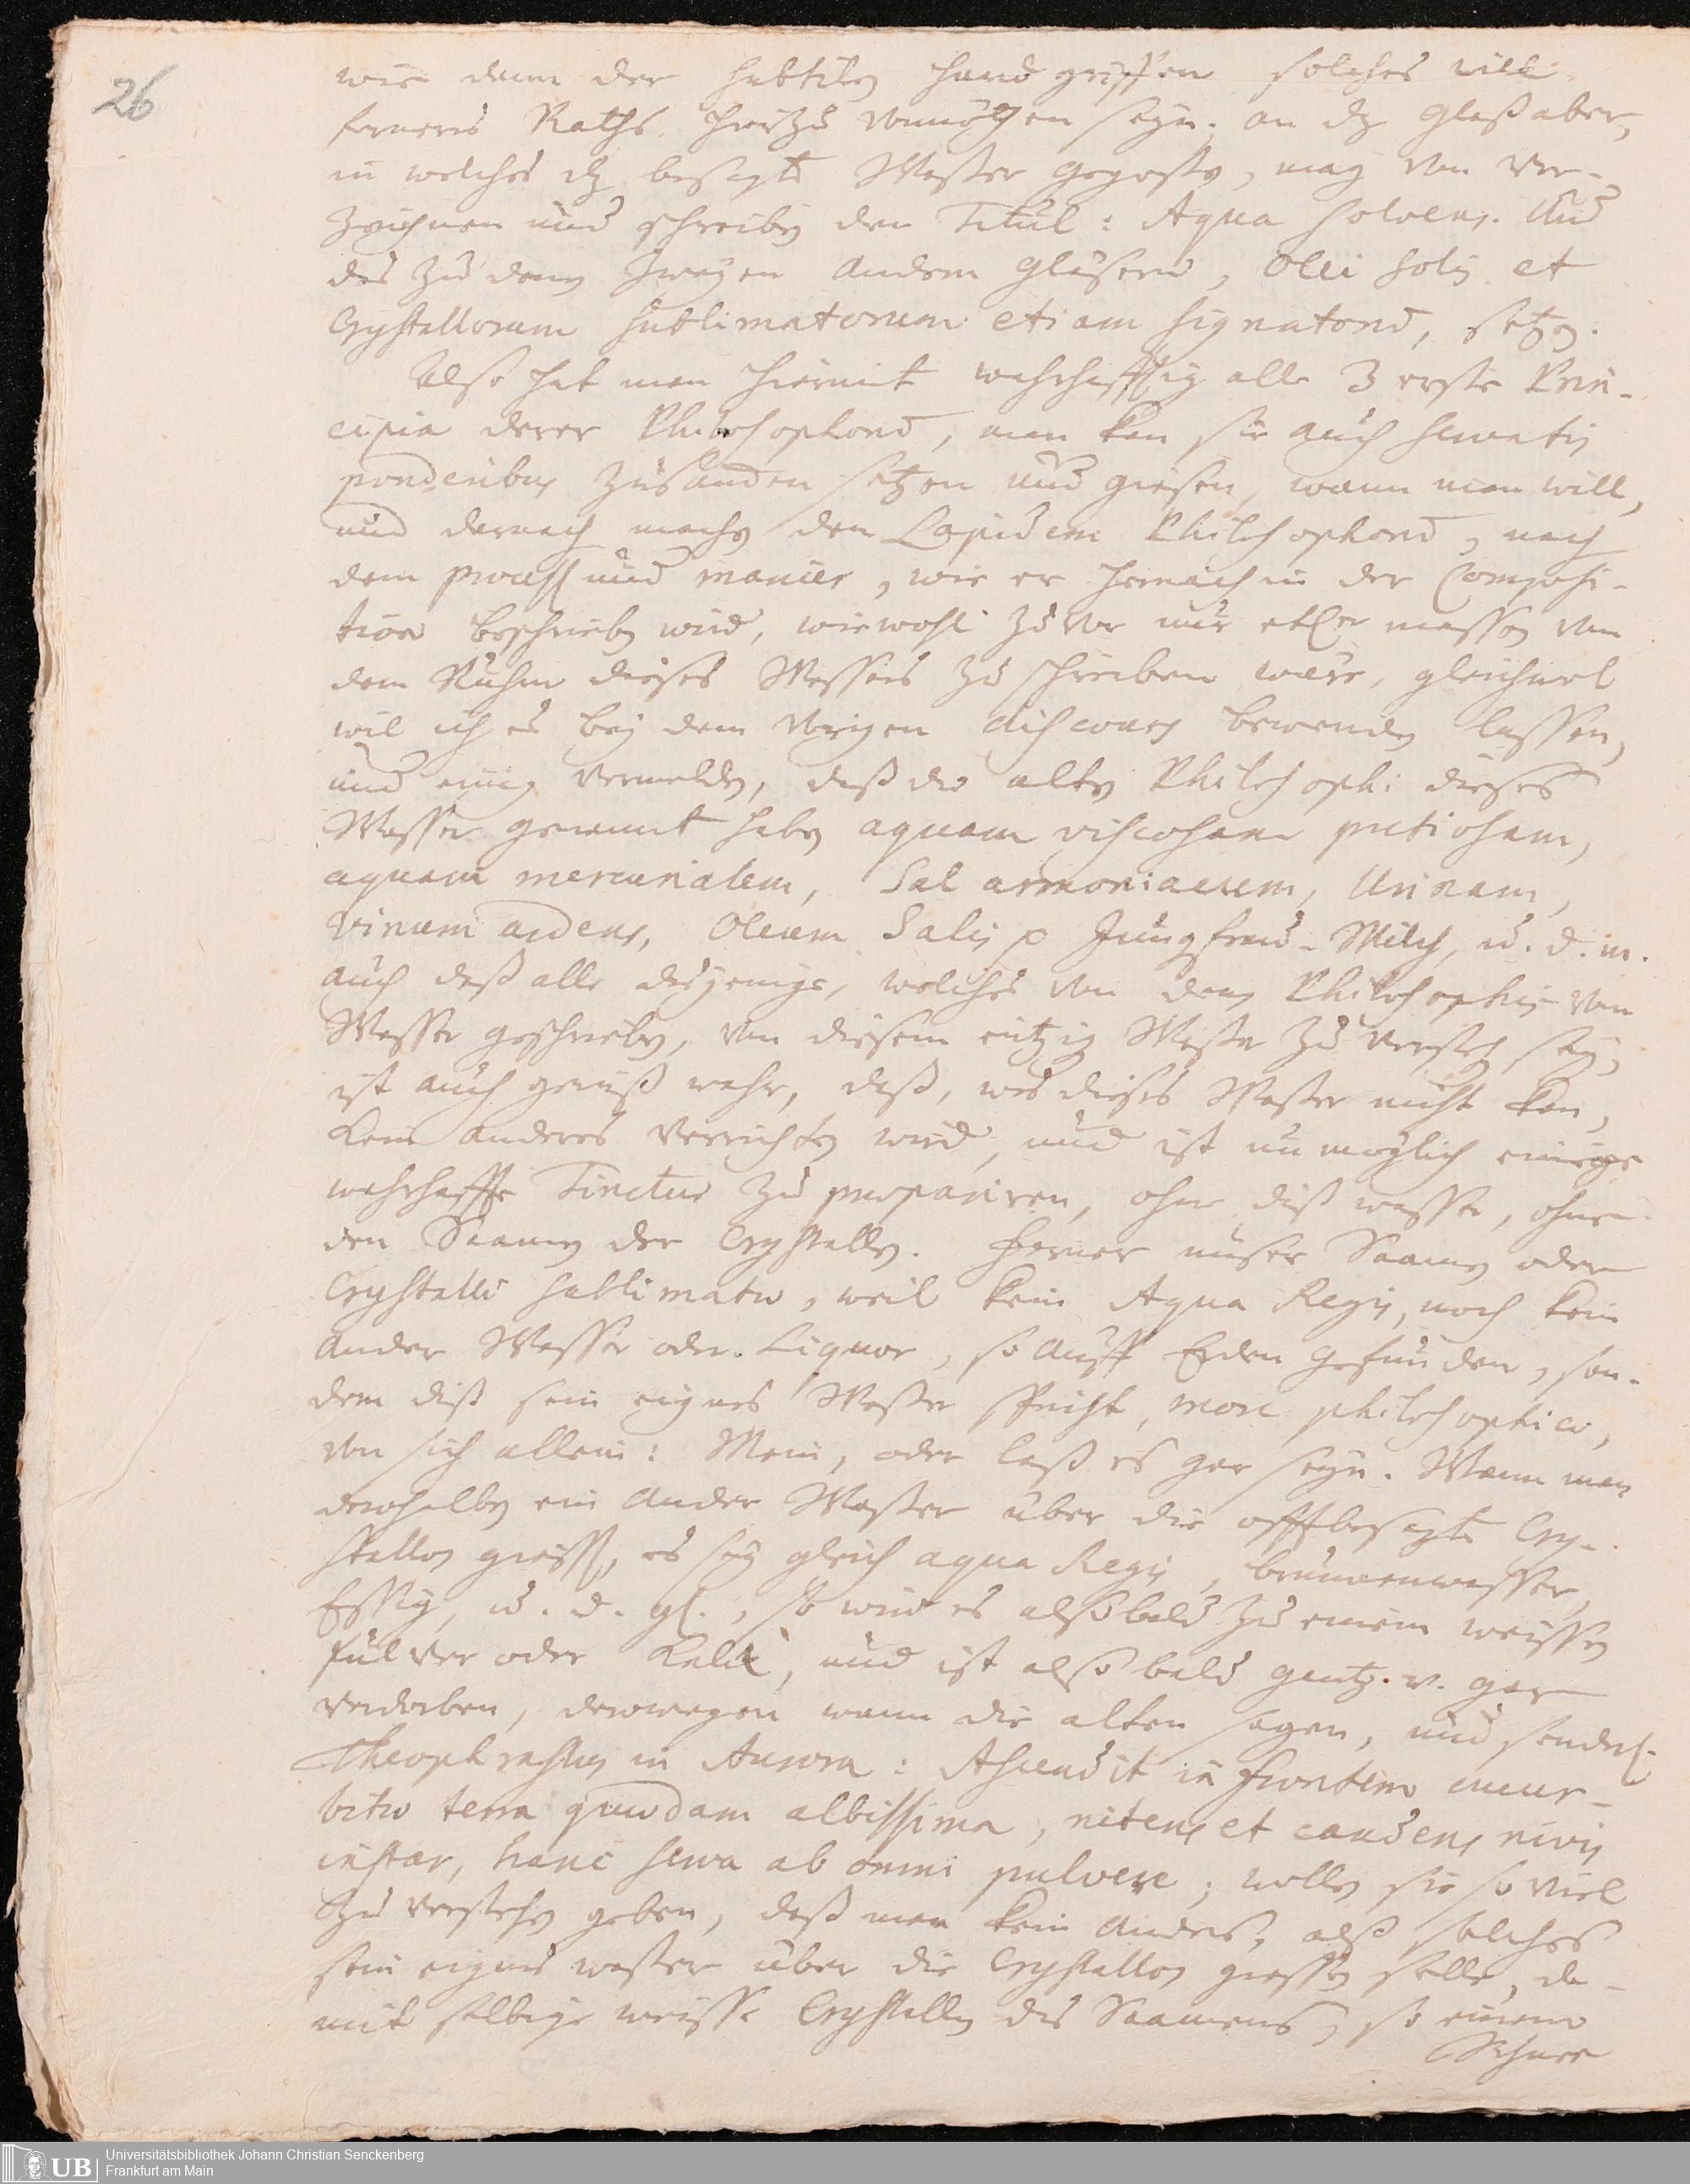 26
wie dann der subtilen handgriffen solches viel
ferners Raths hierzu vonnöthen seyn. an dz Glaß aber,
in welches dz besagte Waßer gegoßen, mag man ver-
zeichnen und schreiben den Titul: Aqua solvens. Und
das zu denen zweyen andern Gläsern, Olei Solis et
Crystallorum sublimatorum etiam signatorum, setzen.
Also hat man hiermit wahrhafftig alle 3 erste Prin-
cipia derer Philosophorum, man kan sie auch servatis
ponderibus zusammen setzen und giesen, wann man will,
und darnach machen den Lapidem Philosophorum, nach
dem process und manier, wie er hernach in der Composi-
tion beschrieben wird, wiewohl zuvor nur etlicher massen von
dem Ruhm dieses Wassers zu schreiben wäre, gleichwol
wil ich es bey dem vorigen discours bewenden lassen,
und einig vermelden, daß die alten Philosophi dieses
Wasser genennt haben aquam viscosam pretiosam,
aquam mercurialem, Sal armoniacum, Urinam,
vinum ardens, Oleum Salis p Jungfrau-Milch, u. d. m.
auch daß alle dasjenige, welches von denen Philosophis von
Wasser geschrieben, von diesem eintzig Waßer zu verstehen sey,
ist auch gewiß wahr, daß, was dieses Waßer nicht kan,
kein anderes verrichten wird, und ist unmöglich einige
wahrhaffte Tinctur zu praepariren, ohne diß wasser, ohne
den Saamen der Crystallen. Ferner unser Saamen oder
Crystalli sublimatae, weil kein Aqua Regis, noch kein
ander Wasser oder Liquor, so auff Erden gefunden, son-
dern diß sein eigenes Waßer , more philosophico,
von sich allein: Mein, oder laß es gar seyn. Wann man
derohalben ein ander Waßer über die offtbesagte Cry-
stallen giesst, es sey gleich aqua Regis, brunnenwasser,
Essig, u. d. gl., so wird es alsobald zu einem weissen
Pulver oder Kalck, und ist alsobald gantz v. gar
verdorben, derowegen wann die alten sagen, und sonderl.
Theophrastus in Aurora: Ascendit in frontem cucur-
bitae terra quaedam albissima, nitens et candens nivis
instar, hanc serva ab omni pulvere; wollen sie so viel
zu verstehen geben, daß man kein anders, alß solches
sein eigenes waßer über die Crystallen giessen solle, da-
mit selbige weisse Crystallen des Saamens, so einem
Schnee
UB
Universitätsbibliothek Johann Christian Senckenberg
Frankfurt am Main